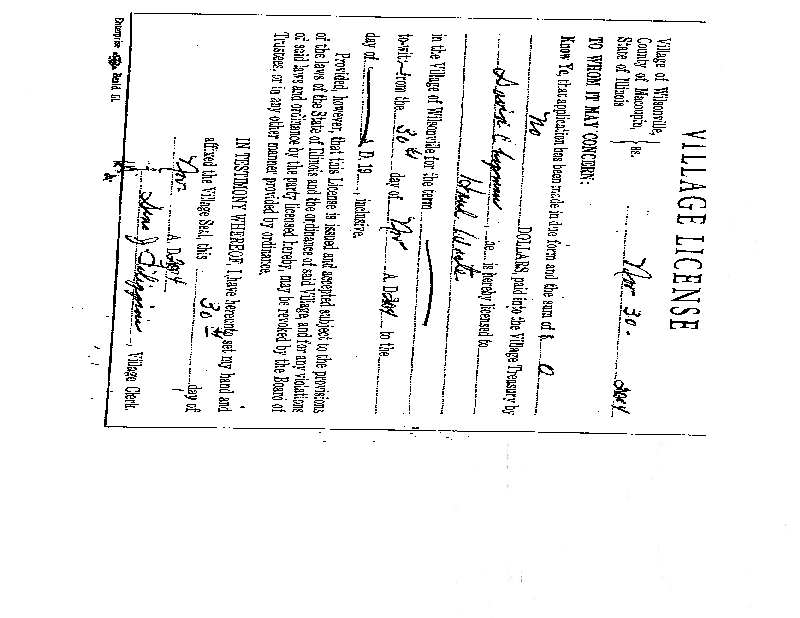 VILLAGE LICENSE
Village of Wilsonville,
County of Macoupin,
State of Illinois
} ss.
Nov 30.
TO WHOM IT MAY CONCERN:
Know Ye, that application has been made in due form and the sum of $ 0
no DOLLARS, paid into the Village Treasury by
Chapman, he is hereby licensed to
Haul Waste
in the Village of Wilsonville for the term
to-wit:—from the 30th day of Nov A. D. to the
day of A. D. 19, inclusive.
Provided, however, that this License is issued and accepted subject to the provisions
of the laws of the State of Illinois and the ordinance of said Village, and for any violations
of said laws and ordinance by the party licensed hereby, may be revoked by the Board of
Trustees, or in any other manner provided by ordinance.
IN TESTIMONY WHEREOF, I have hereunto set my hand and
affixed the Village Seal, this 30th day of
Nov A. D.
, Village Clerk.
Enterprise